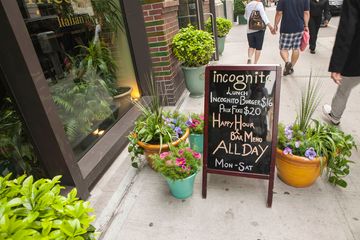 Italian
incognito
LUNCH
INCOGNITO BURGER $16
PRIX FIXE $20
HAPPY HOUR
& BAR MENU
ALL DAY
MON-SAT